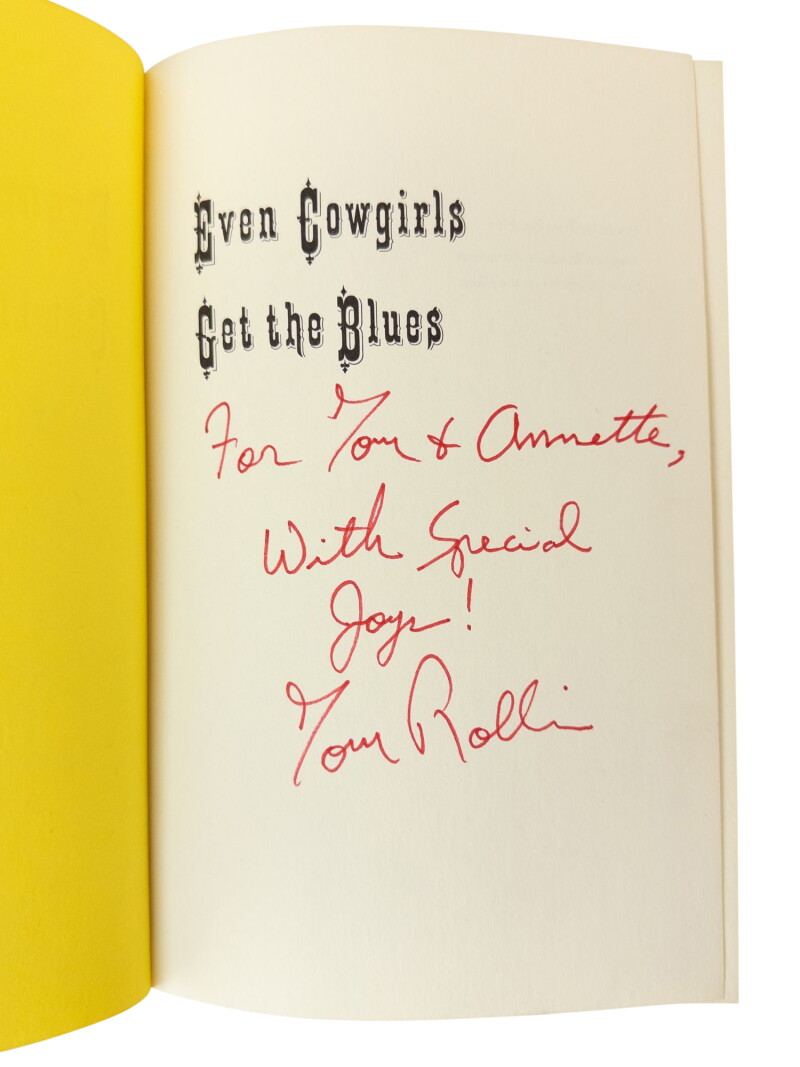 Even Cowgirls
Get the Blues
For Tom & Annette,
With Special
Joys!
Tom Robbins